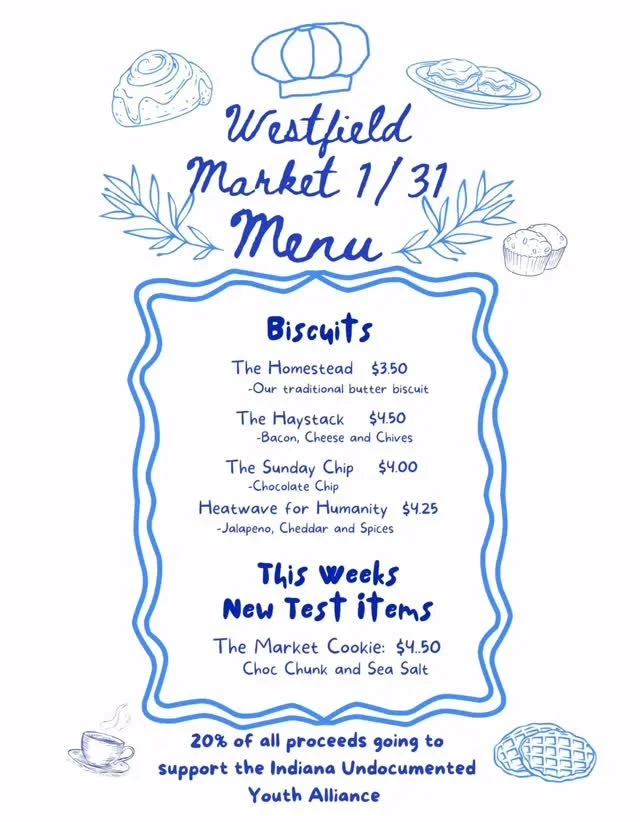 Westfield
Market 1/31
Menu
Biscuits
The Homestead $3.50
-Our traditional butter biscuit
The Haystack $4.50
-Bacon, Cheese and Chives
The Sunday Chip $4.00
-Chocolate Chip
Heatwave for Humanity $4.25
-Jalapeno, Cheddar and Spices
This Weeks
New Test items
The Market Cookie: $4..50
Choc Chunk and Sea Salt
20% of all proceeds going to
support the Indiana Undocumented
Youth Alliance